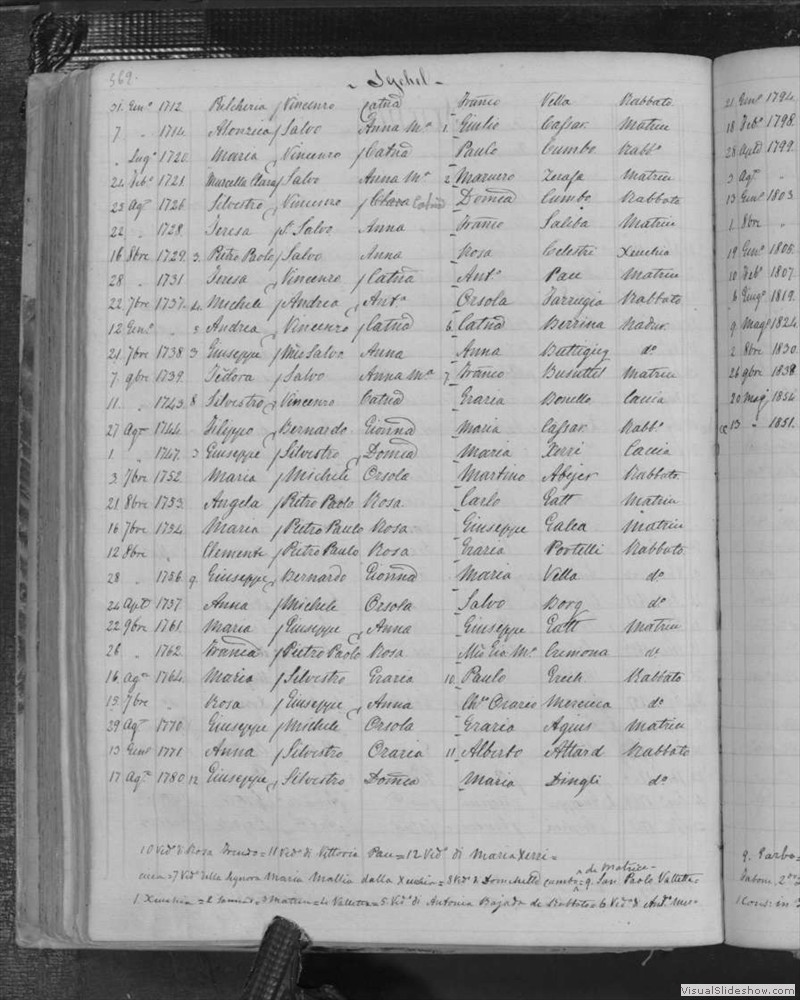 569.
Sychel
31. Gen.o 1712 Belcheria / Vincenzo Catña Franco Vella Rabbato
7 " 1714. Alonzica / Salvo Anna M.a 1. Giulio Cassar Matrice
" Lug.o 1720. Maria / Vincenzo / Catña Paulo Cumbo Rabb.o
24 Feb.o 1721. Marcella Clara / Salvo Anna M.a 2 Marurro Zerafa Matrice
23 Ag.o 1726. Silvestro / Vincenzo / Clara Catña Domca Cumbo Rabbato
22 " 1728. Teresa / Salvo Anna Franco Saliba Matrice
16 8bre 1729. 3. Pietro Paolo / Salvo Anna Rosa Celestri Xeuchia
28 " 1731 Teresa / Vincenzo / Catña Ant.o Pace Matrice
22 7bre 1737. 4. Michele / Andrea / Ant.a Orsola Farrugia Rabbato
12 Gen.o " 5 Andrea / Vincenzo / Catña 6. Catña Berrina Nadur
21. 7bre 1738 3 Giuseppe / Salvo Anna Anna Buttigieg d.o
7. 9bre 1739. Teodora / Salvo Anna M.a 7 Franco Busuttil Matrice
11 " 1743. 8 Silvestro / Vincenzo Catña Grazia Bonello Caccia
27 Ag.o 1744. Filippo / Bernardo Gionña Maria Cassar Rabb.o
1. " 1747. 3. Giuseppe / Silvestro / Domca Maria Xerri Caccia
3. 7bre 1752. Maria / Michele Orsola Martino Abejer Rabbato
21 8bre 1753. Angela / Pietro Paolo Rosa Carlo Gatt Matrice
16 7bre 1754. Maria / Pietro Paulo Rosa Giuseppe Galea Matrice
12 8bre " Clemente / Pietro Paulo Rosa Grazia Portelli Rabbato
28 " 1756 9. Giuseppe / Bernardo Gionña Maria Vella d.o
24 1757. Anna / Michele Orsola Salvo Borg d.o
22 9bre 1761. Maria / Giuseppe / Anna Giuseppe Gatt Matrice
26 " 1762. Franca / Pietro Paolo Rosa M.a Cremona d.o
16. Ag.o 1764. Maria / Silvestro Grazia 10. Paulo Grech Rabbato
13. 7bre " Rosa / Giuseppe / Anna Orazio Mercieca d.o
29 Ag.o 1770 Giuseppe / Michele Orsola Grazia Agius Matrice
13 Gen.o 1771. Anna / Silvestro Orazia 11. Alberto Attard Rabbato
17 Ag.o 1780 12 Giuseppe / Silvestro Domca Maria Dingli d.o
10 Vid.o di Rosa = 11 Vid.o di Vittoria Pace = 12 Vid.o di Maria Xerri =
= 7 Vid.o della Signora Maria Mallia dalla Xeuchia = 8 Vid.o di cumbo de Matrice = 9. San Paolo Valletta
1 Xeuchia = 2 = 3 Matrice = 4 Valletta = 5 Vid.o di Antonia Bajada de Rabbato = 6 Vid.o di
21 Gen.o 1794.
18 Feb.o 1798.
28 1799.
3 Ag.o "
13 Gen.o 1803.
1. 8bre "
19 Gen.o 1805.
10 Feb.o 1807.
6 Giug.o 1819.
9. Mag.o 1824.
2. 8bre 1830.
26 9bre 1838.
20 Mag. 1854
13 " 1851.
VisualSlideshow.com